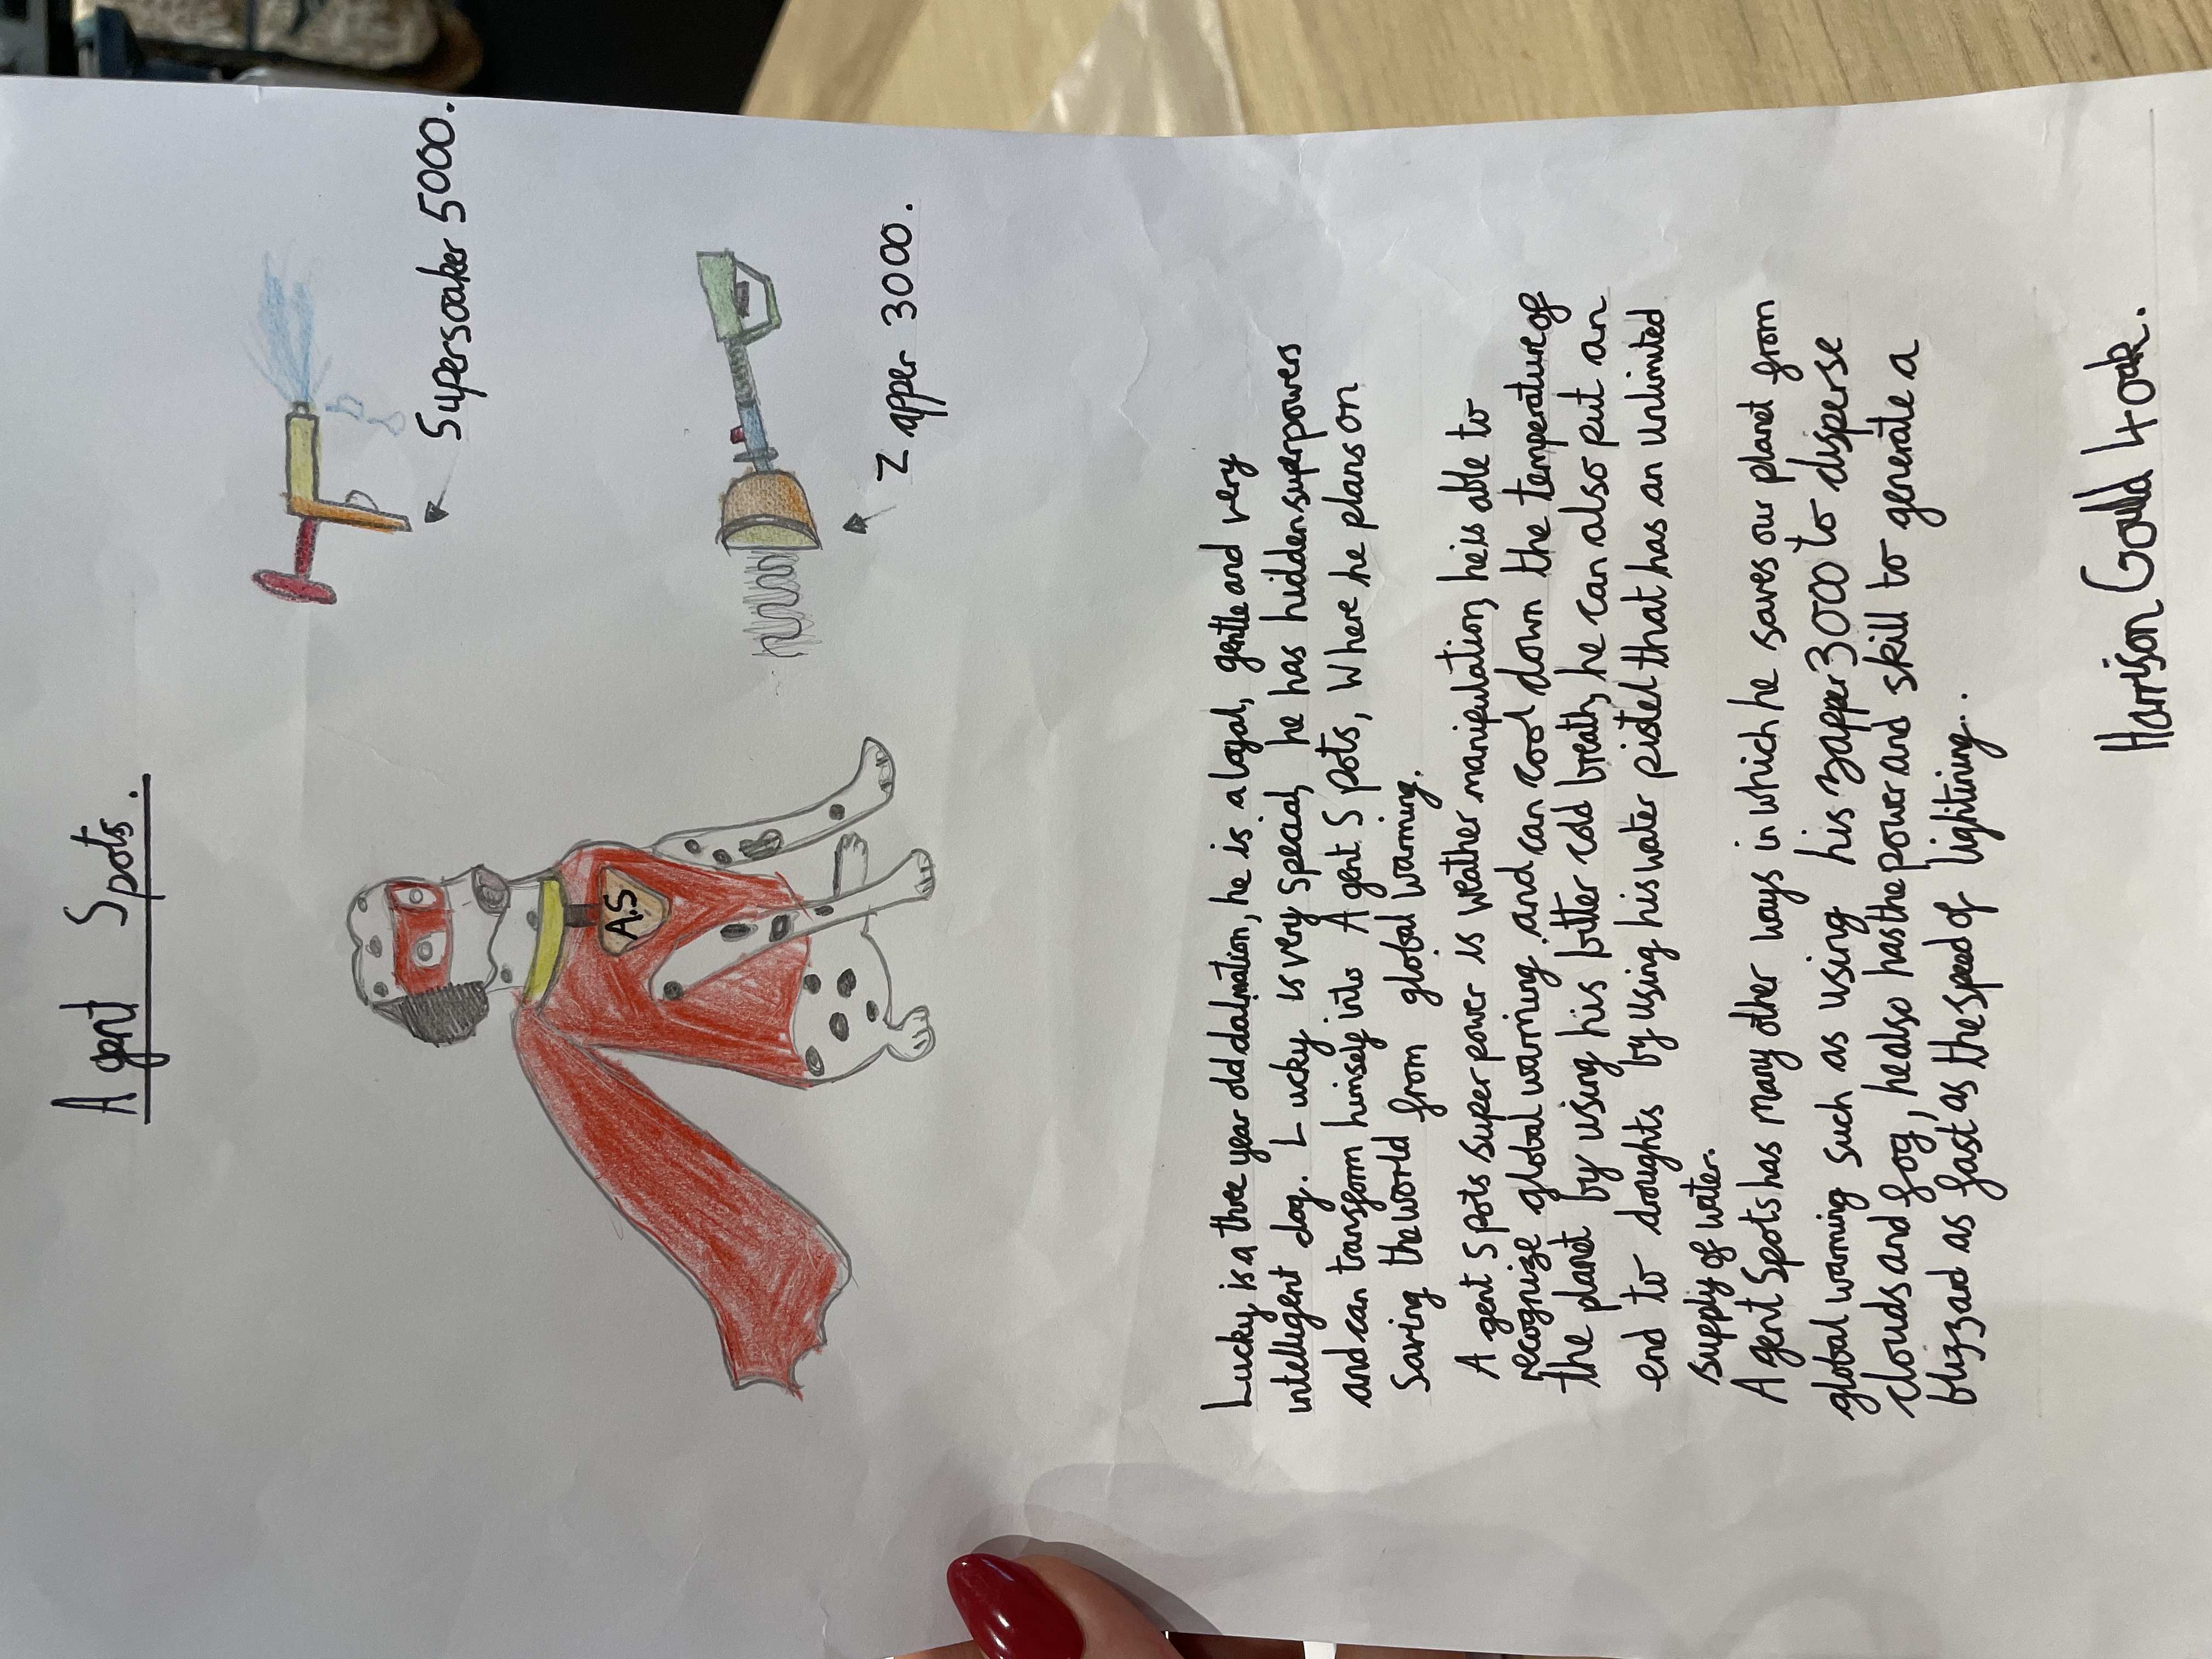 Agent Spots.
Supersoaker 5000.
A.S
Zapper 3000.
Lucky is a three year old dalmation, he is a loyal, gentle and very
intelligent dog. Lucky is very special, he has hidden superpowers
and can transform himself into Agent Spots, Where he plans on
Saving the world from global warming.
Agent Spots super power is weather manipulation, he is able to
recognize global warming and can cool down the temperature of
the planet by using his bitter cold breath, he can also put an
end to droughts by using his water pistel that has an unlimited
supply of water.
Agent Spots has many other ways in which he saves our planet from
global warming such as using his zapper 3000 to disperse
clouds and fog, he also has the power and skill to generate a
blizzard as fast as the speed of lightining..
Harrison Gould 4 oak.